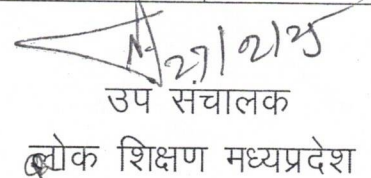 27/2/25
उप संचालक
लोक शिक्षण मध्यप्रदेश